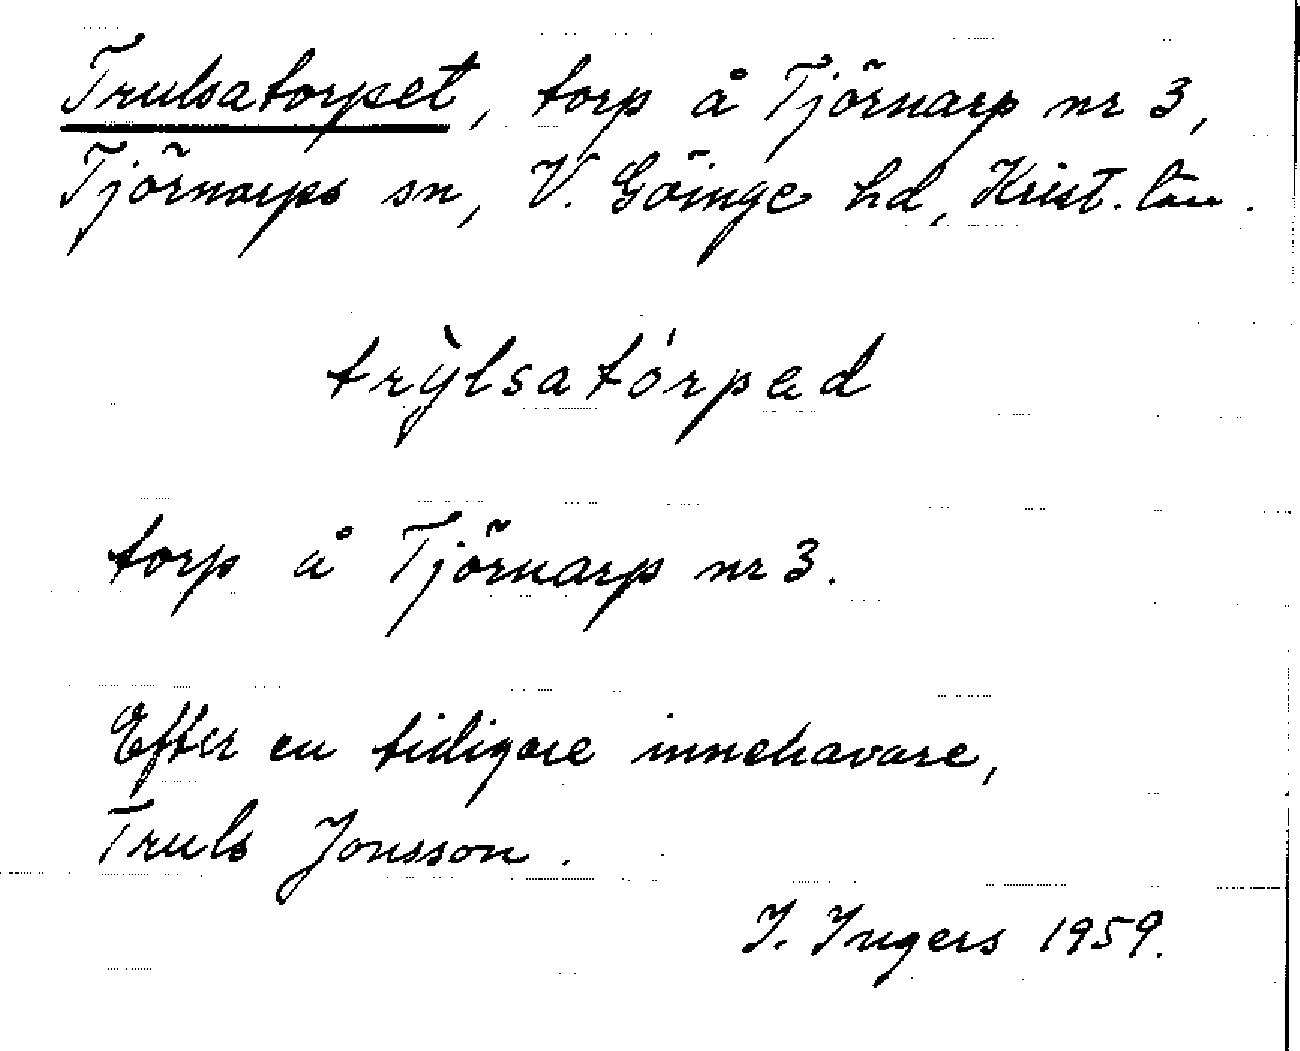 Trulsatorpet, torp å Tjörnarp nr 3,
Tjörnarps sn, V. Göinge hd, Krist. län.
trỳlsatórpəd
torp å Tjörnarp nr 3.
Efter en tidigare innehavare,
Truls Jonsson.
I. Ingers 1959.